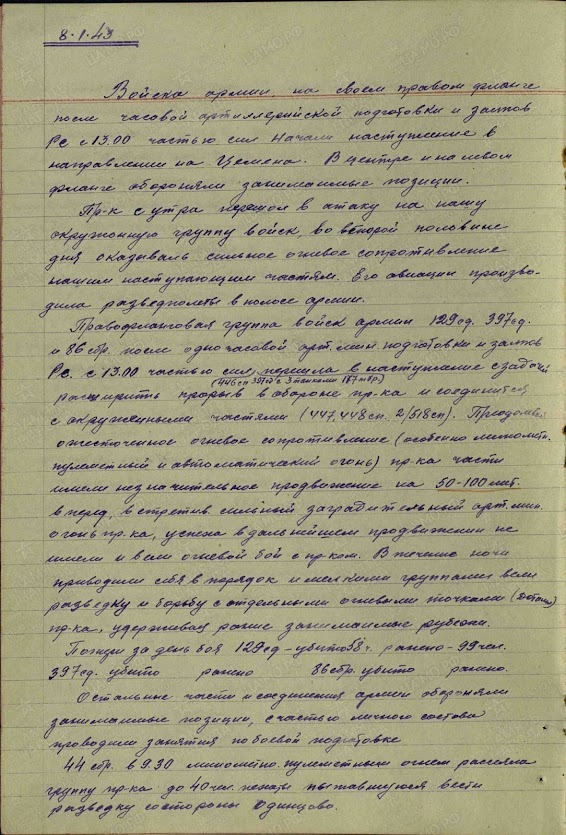 8.1.43
Войска армии на своем правом фланге
после часовой артиллерийской подготовки и залпов
Рс с 13.00 частью сил начали наступление в
направлении на Цемена. В центре и на левом
фланге обороняли занимаемые позиции.
Пр-к с утра перешол в атаку на нашу
окруженную группу войск, во второй половине
дня оказывал сильное огневое сопротивление
нашим наступающим частям. Его авиация произво-
дила разведполеты в полосе армии.
Правофланговая группа войск армии 129сд. 397сд.
и 86сбр. после одночасовой арт.мин. подготовки и залпов
Рс. с 13.00 частью сил перешла в наступление с задачей
(446сп 397сд с 3 танками 187тбр.)
расширить прорыв в обороне пр-ка и соединиться
с окруженными частями (447,448сп. 2/518сп). Преодолевая
ожесточенное огневое сопротивление (особенно минометн.
пулеметный и автоматический огонь) пр-ка части
имели незначительное продвижение на 50-100мт.
вперед, встретив сильный заградительный арт.мин.
огонь пр-ка, успеха в дальнейшем продвижении не
имели и вели огневой бой с пр-ком. В течение ночи
приводили себя в порядок и мелкими группами вели
разведку и борьбу с отдельными огневыми точками (Дотами)
пр-ка, удерживая ранее занимаемые рубежи.
Потери за день боя 129сд - убито 58ч. ранено - 99чел.
397сд. убито ранено 86сбр. убито ранено.
Остальные части и соединения армии обороняли
занимаемые позиции, с частью личного состава
проводили занятия по боевой подготовке
44 сбр. в 9.30 минометно-пулеметным огнем рассеяла
группу пр-ка до 40чел. пехоты пытавшуюся вести
разведку со стороны Одинцово.